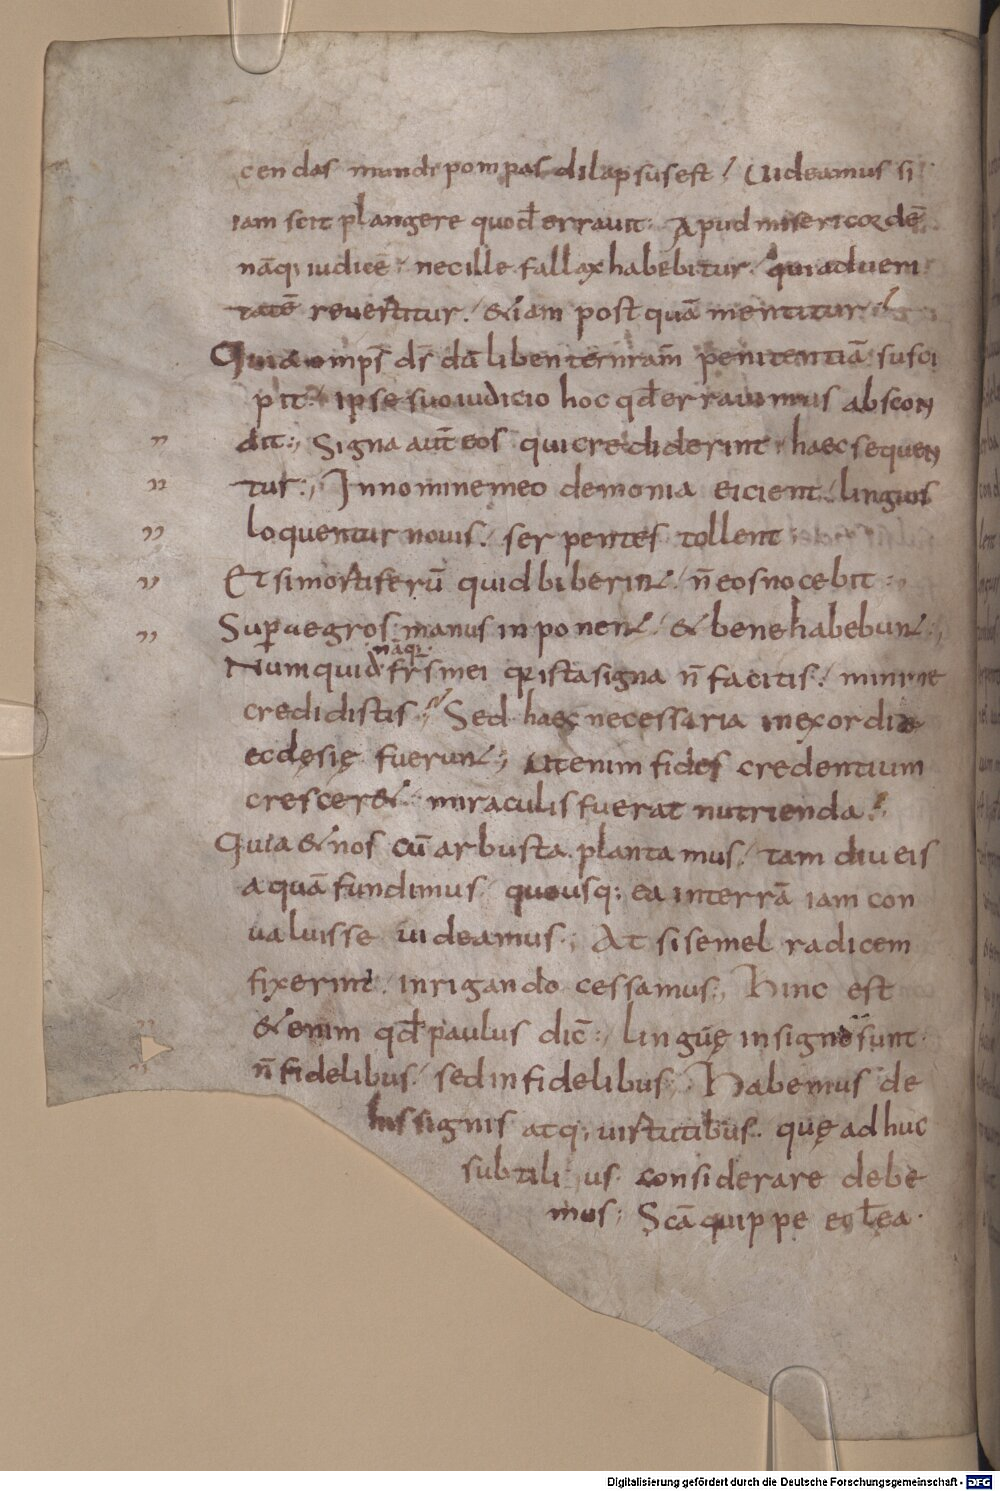 cendas mundi pompas dilapsus est. Uideamus si
iam scit plangere quod errauit. Apud misericordē
nāq; iudicē nec ille fallax habebitur. qui ad ueri
tatē reuertitur. & iam postquā mentitur.
Quia omps ds dū libenter nram penitentiā susci
pit. ipse suo iudicio hoc qd errauimus abscon
dit. Signa aut eos qui crediderint haec sequen
tur. In nomine meo demonia eicient. linguis
loquentur nouis. serpentes tollent
Et si mortiferū quid biberint. n̄ eos nocebit
Sup aegros manus inponent. & bene habebunt.
nāq;
Numquid frs mei q ista signa n̄ facitis. minime
credidistis. Sed haec necessaria in exordio
ecclesię fuerunt. Ut enim fides credentium
cresceret. miraculis fuerat nutrienda.
Quia & nos cū arbusta plantamus. tam diu eis
aquā fundimus. quousq; ea in terrā iam con
ualuisse uideamus. At si semel radicem
fixerint. inrigando cessamus. Hinc est
& enim qd paulus dic. linguę in signo sunt
n̄ fidelibus. sed infidelibus. Habemus de
his signis atq; uirtutibus. quę adhuc
subtilius considerare debe
mus. Scā quippe eclea.
Digitalisierung gefördert durch die Deutsche Forschungsgemeinschaft - DFG